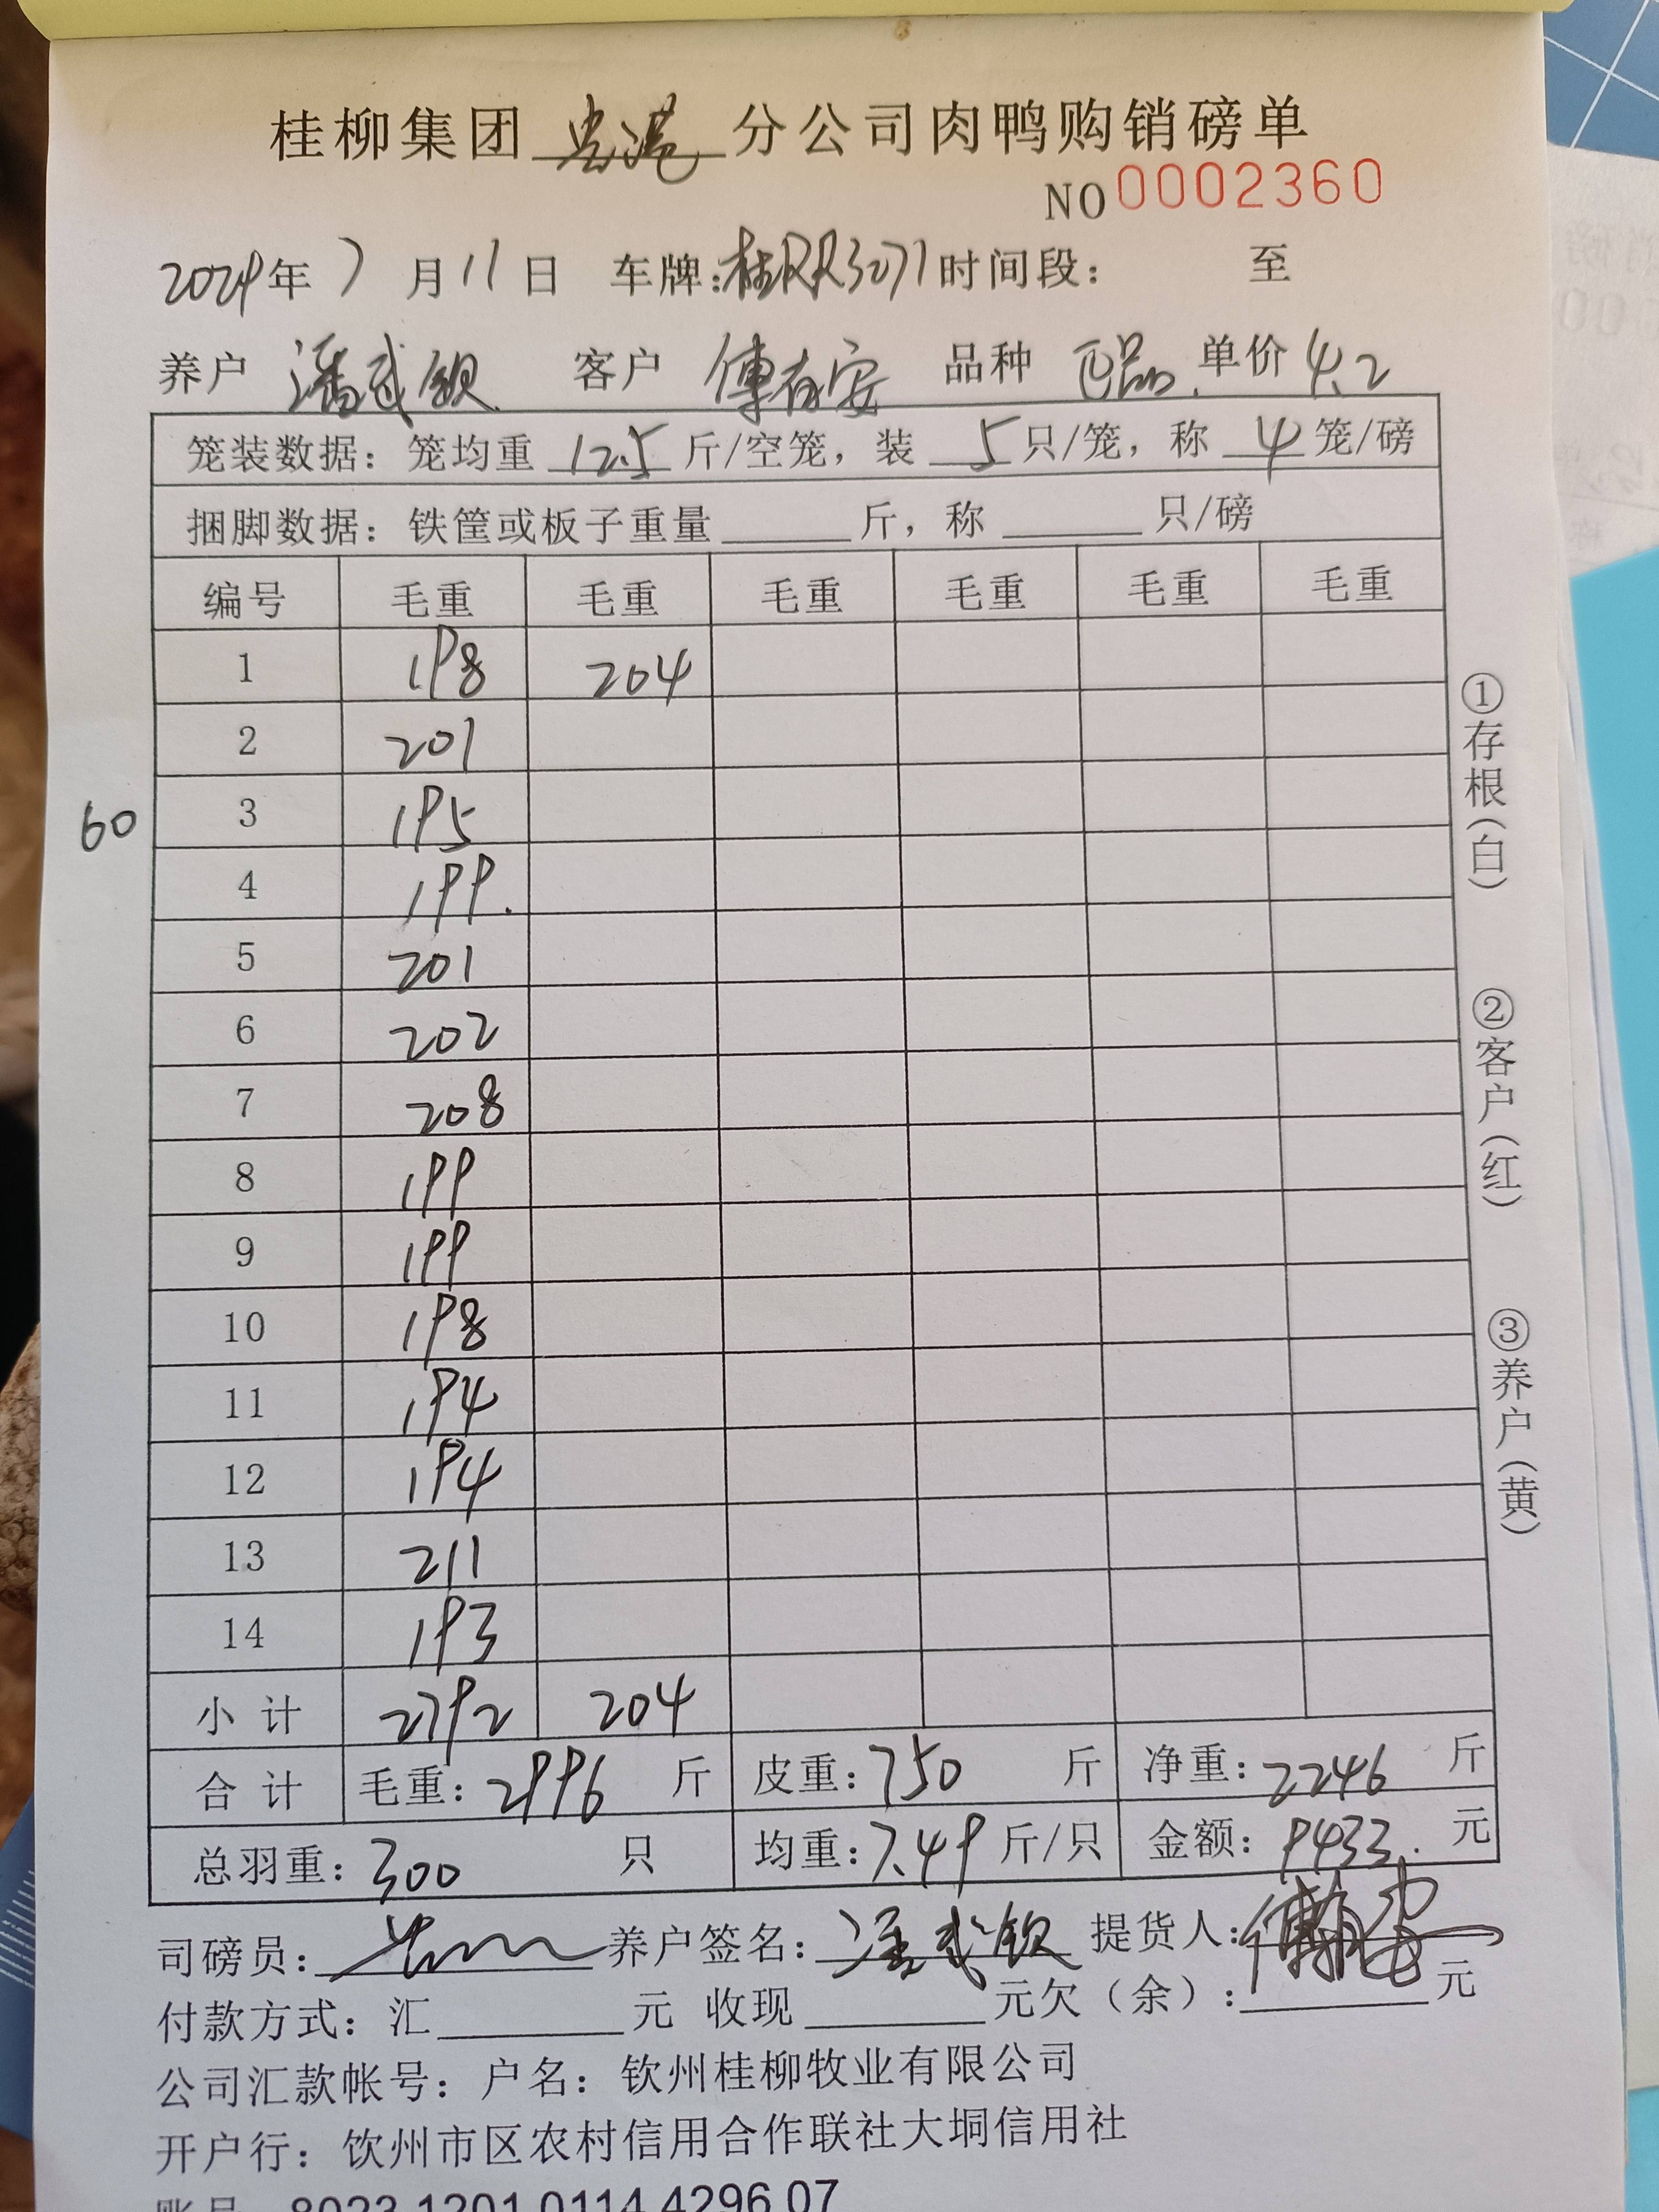 桂柳集团 贵港 分公司肉鸭购销磅单
NO 0002360
2024年 7 月 11 日 车牌:桂RR3071 时间段: 至
养户 潘武钦 客户 傅有安 品种 正品. 单价 4.2
笼装数据: 笼均重 12.5 斤/空笼, 装 5 只/笼, 称 4 笼/磅
捆脚数据: 铁筐或板子重量______斤, 称______只/磅
编号 毛重 毛重 毛重 毛重 毛重 毛重
1 198 204
2 201
60
3 195
4 199.
5 201
6 202
7 208
8 199
9 199
10 198
11 194
12 194
13 211
14 193
小 计 2792 204
合 计 毛重: 2996 斤 皮重: 750 斤 净重: 2246 斤
总羽重: 300 只 均重: 7.49 斤/只 金额: 9433. 元
司磅员: 养户签名: 潘武钦 提货人: 傅有安
付款方式: 汇______元 收现______元欠（余）:______元
公司汇款帐号: 户名: 钦州桂柳牧业有限公司
开户行: 钦州市区农村信用合作联社大垌信用社
账号 8023 1201 0114 4296 07
①存根（白）
②客户（红）
③养户（黄）